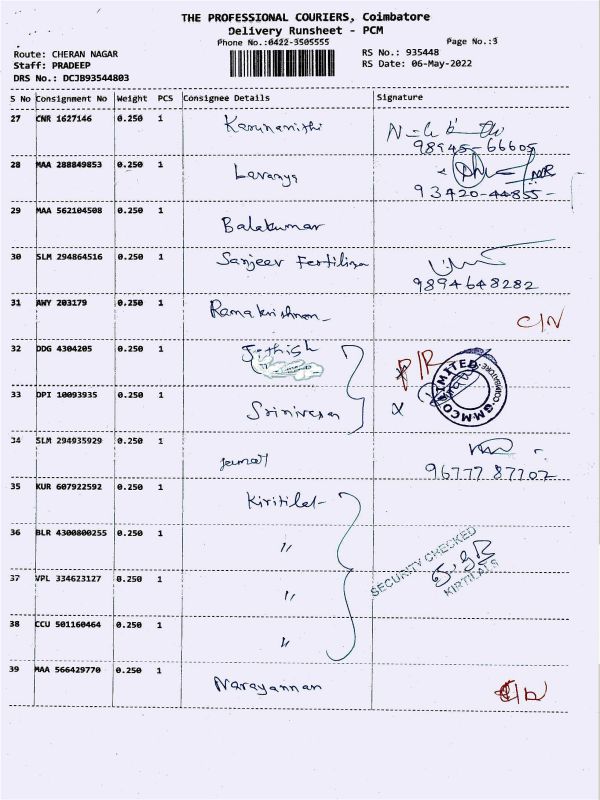 THE PROFESSIONAL COURIERS, Coimbatore
Delivery Runsheet - PCM
Phone No.:0422-3505555
Page No.:3
Route: CHERAN NAGAR
RS No.: 935448
Staff: PRADEEP
RS Date: 06-May-2022
DRS No.: DCJB93544803
S No Consignment No Weight PCS Consignee Details Signature
27 CNR 1627146 0.250 1 Karunanithi
98945-66605
28 MAA 288849853 0.250 1 Lavanya
93420-44855-
29 MAA 562104508 0.250 1 Balakumar
30 SLM 294864516 0.250 1 Sanjeev Fertiliza
9894648282
31 AWY 203179 0.250 1 Ramakrishnan C/N
32 DDG 4304205 0.250 1 Jothish P/R
GMMCO LIMITED COIMBATORE
33 DPI 10093935 0.250 1 Srinivasan X
34 SLM 294935929 0.250 1
96777 87707
35 KUR 607922592 0.250 1 Kiritilal-
36 BLR 4300800255 0.250 1 "
SECURITY CHECKED
KIRTILALS
37 VPL 334623127 0.250 1 "
38 CCU 501160464 0.250 1 "
39 MAA 566429770 0.250 1 Narayannan